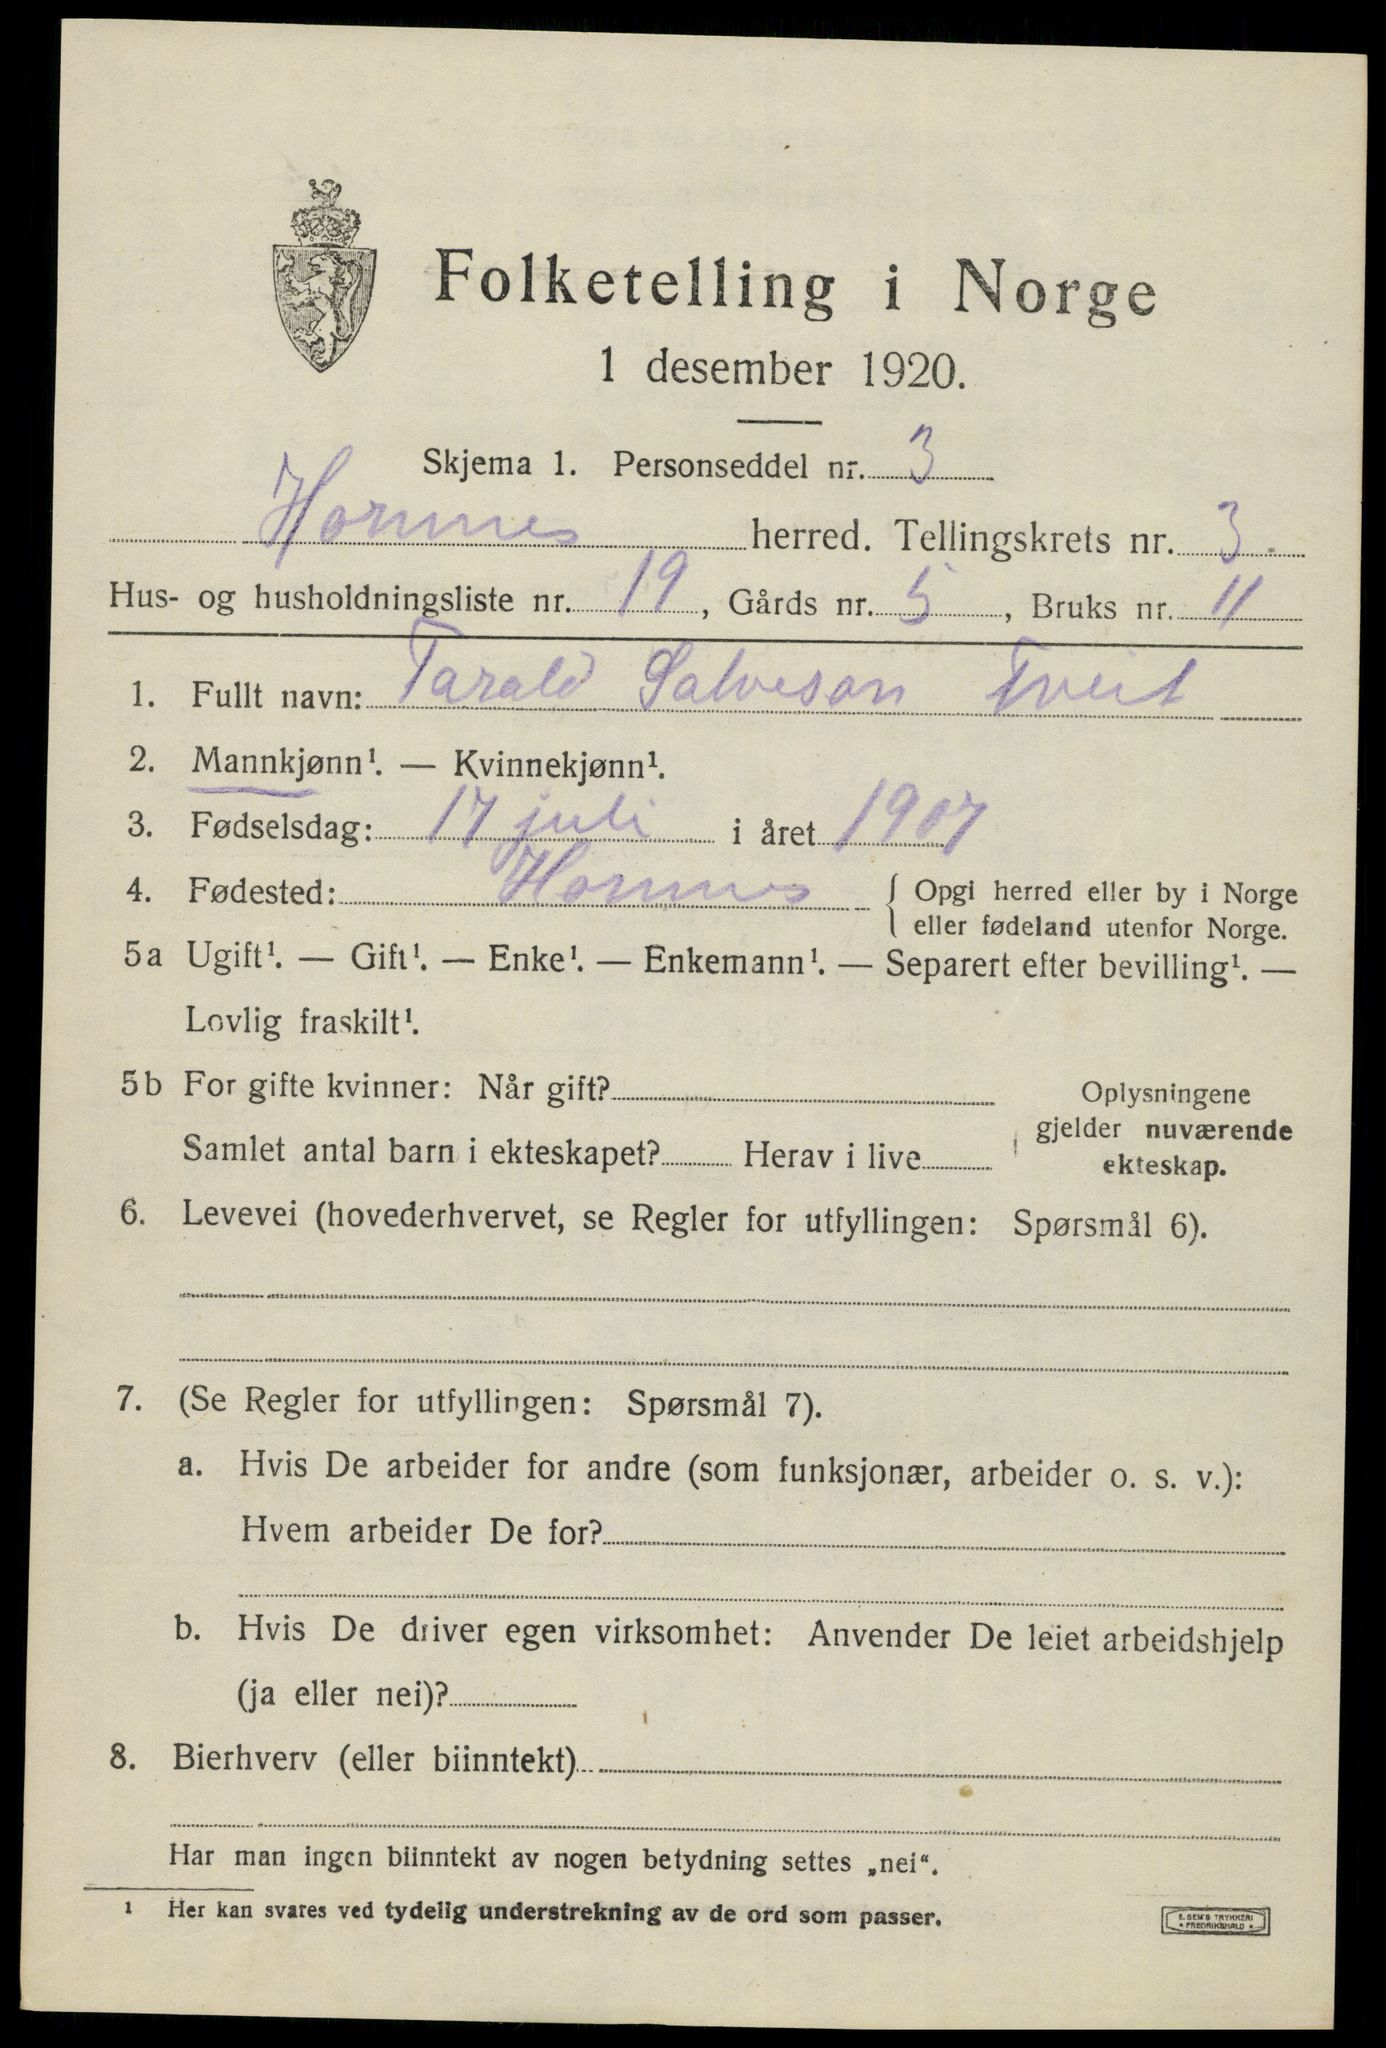 Folketelling i Norge
1 desember 1920.
Skjema 1. Personseddel nr. 3
Hornnes herred. Tellingskrets nr. 3.
Hus- og husholdningsliste nr. 19, Gårds nr. 5, Bruks nr. 11
1. Fullt navn: Tarald Salveson Tveit
2. Mannkjønn¹. — Kvinnekjønn¹.
3. Fødselsdag: 17 juli i året 1907
4. Fødested: Hornnes { Opgi herred eller by i Norge
eller fødeland utenfor Norge.
5a Ugift¹. — Gift¹. — Enke¹. — Enkemann¹. — Separert efter bevilling¹. —
Lovlig fraskilt¹.
5b For gifte kvinner: Når gift?
Samlet antal barn i ekteskapet? Herav i live
Oplysningene
gjelder nuværende
ekteskap.
6. Levevei (hovederhvervet, se Regler for utfyllingen: Spørsmål 6).
7. (Se Regler for utfyllingen: Spørsmål 7).
a. Hvis De arbeider for andre (som funksjonær, arbeider o. s. v.):
Hvem arbeider De for?
b. Hvis De driver egen virksomhet: Anvender De leiet arbeidshjelp
(ja eller nei)?
8. Bierhverv (eller biinntekt)
Har man ingen biinntekt av nogen betydning settes „nei".
1 Her kan svares ved tydelig understrekning av de ord som passer.
E. SEM'S TRYKKERI
• FREDRIKSHALD •